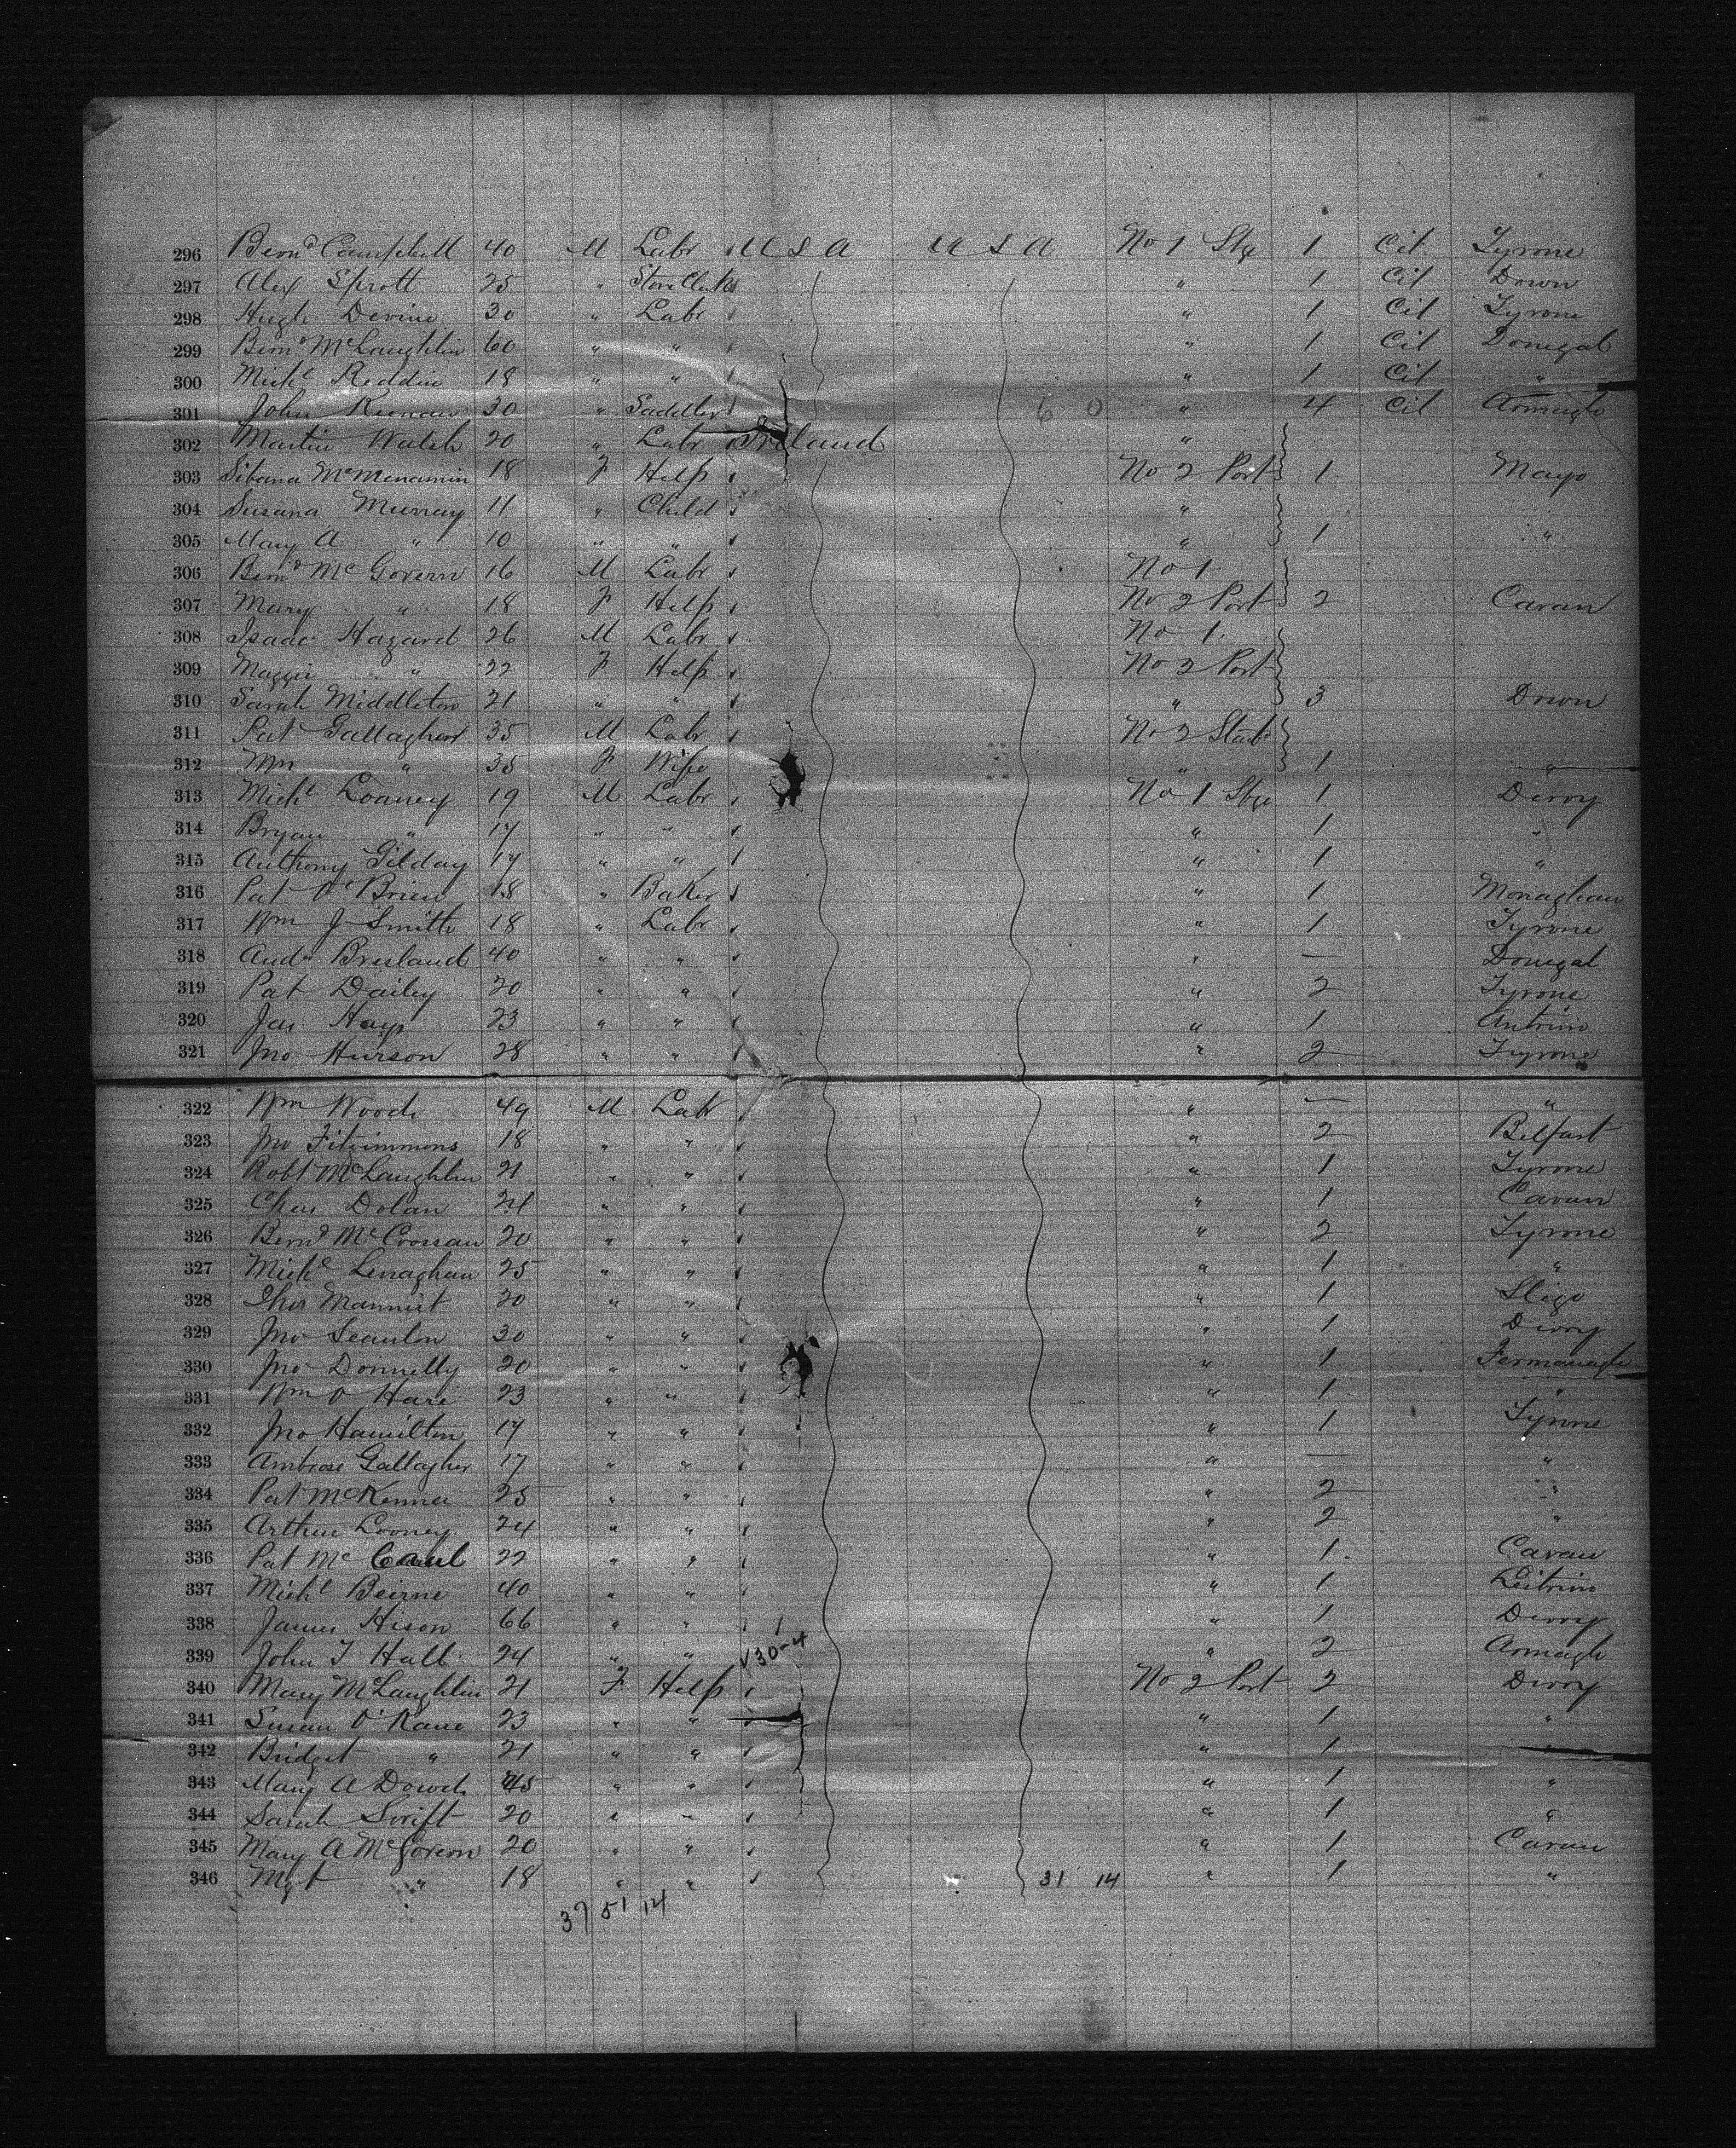 296 Bernd Campbell 40 M Labr U S A U S A No 1 Stge 1 Cit Tyrone
297 Alex Sprott 25 " Store Clerk " 1 Cit Down
298 Hugh Devine 30 " Labr " 1 Cit Tyrone
299 Bernd McLaughlin 60 " " " 1 Cit Donegal
300 Michl Reddin 18 " " " 1 Cit "
301 John Keenan 30 " Saddler 6 0 " 4 Cit Armagh
302 Martin Walsh 20 " Labr Ireland "
303 Sibana McMenamin 18 F Help No 2 Port 1 Mayo
304 Susana Murray 11 " Child "
305 Mary A " 10 " " " 1 "
306 Bernd McGovern 16 M Labr No 1
307 Mary " 18 F Help No 2 Port 2 Cavan
308 Isaac Hazard 26 M Labr No 1
309 Maggie " 22 F Help No 2 Port
310 Sarah Middleton 21 " " " 3 Down
311 Pat Gallagher 35 M Labr No 2 Starb
312 " 35 F Wife " 1 "
313 Michl Loaney 19 M Labr No 1 Stge 1 Derry
314 Bryan " 17 " " " 1 "
315 Anthony Gilday 17 " " " 1 "
316 Pat O'Brien 18 " Baker " 1 Monaghan
317 Wm J Smith 18 " Labr " 1 Tyrone
318 Andw Bresland 40 " " " — Donegal
319 Pat Dailey 20 " " " 2 Tyrone
320 Jas Hays 23 " " " 1 Antrim
321 Jno Hurson 28 " " " 2 Tyrone
322 Wm Woods 49 M Labr " — "
323 Jno Fitzimmons 18 " " " 2 Belfast
324 Robt McLaughlin 21 " " " 1 Tyrone
325 Chas Dolan 21 " " " 1 Cavan
326 Bernd McCrossan 20 " " " 2 Tyrone
327 Michl Lenaghan 25 " " " 1 "
328 Thos 20 " " " 1 Sligo
329 Jno Scanlon 30 " " " 1 Derry
330 Jno Donnelly 20 " " " 1 Fermanagh
331 Wm O Hare 23 " " " 1 "
332 Jno Hamilton 17 " " " 1 Tyrone
333 Ambrose Gallagher 17 " " " — "
334 Pat McKenna 25 " " " 2 "
335 Arthur Looney 24 " " " 2 "
336 Pat McCaul 22 " " " 1 Cavan
337 Michl Beirne 40 " " " 1 Leitrim
338 James Hison 66 " " " 1 Derry
339 John T Hall 24 " " 30-4 " 2 Armagh
340 Mary McLaughlin 21 F Help No 2 Port 2 Derry
341 Susan O'Kane 23 " " " 1 "
342 Bridget " 21 " " " 1 "
343 Mary A Dowds 45 " " " 1 "
344 Sarah Swift 20 " " " 1 "
345 Mary A McGovern 20 " " " 1 Cavan
346 Mgt " 18 " " 31 14 " 1 "
37 51 14